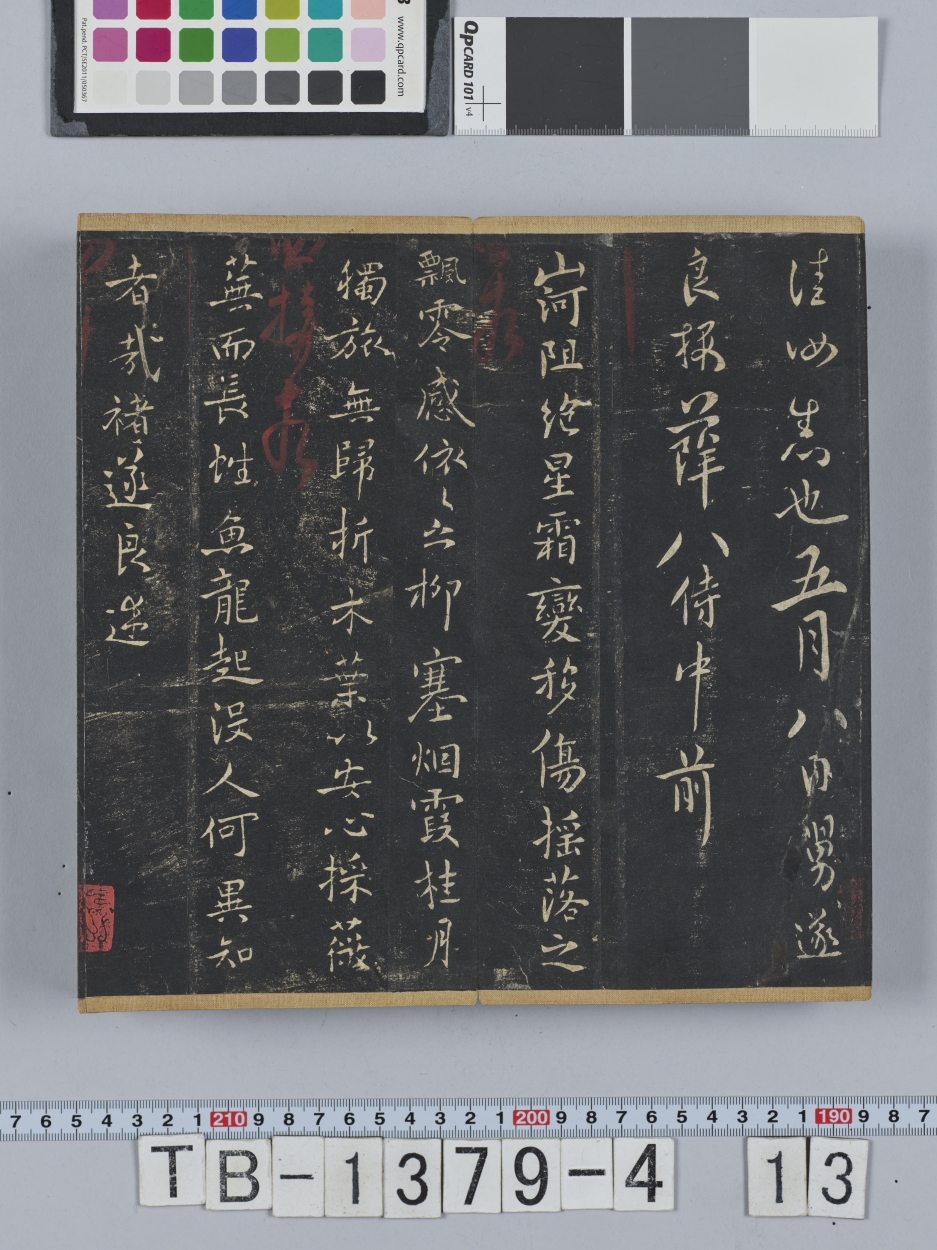 www.qpcard.com
Pat.pend. PCT/SE2011/050367
QPCARD 101 v4
佳汝恚也五月八日舅遂
良報薛八侍中前
山河阻絶星霜變移傷摇落之
飄零感依〻之柳塞烟霞桂月
獨旅無歸折木葉以安心採薇
蕪而長性魚龍起没人何異知
者哉褚遂良述
7 6 5 4 3 2 1 210 9 8 7 6 5 4 3 2 1 200 9 8 7 6 5 4 3 2 1 190 9 8 7
TB-1379-4 13